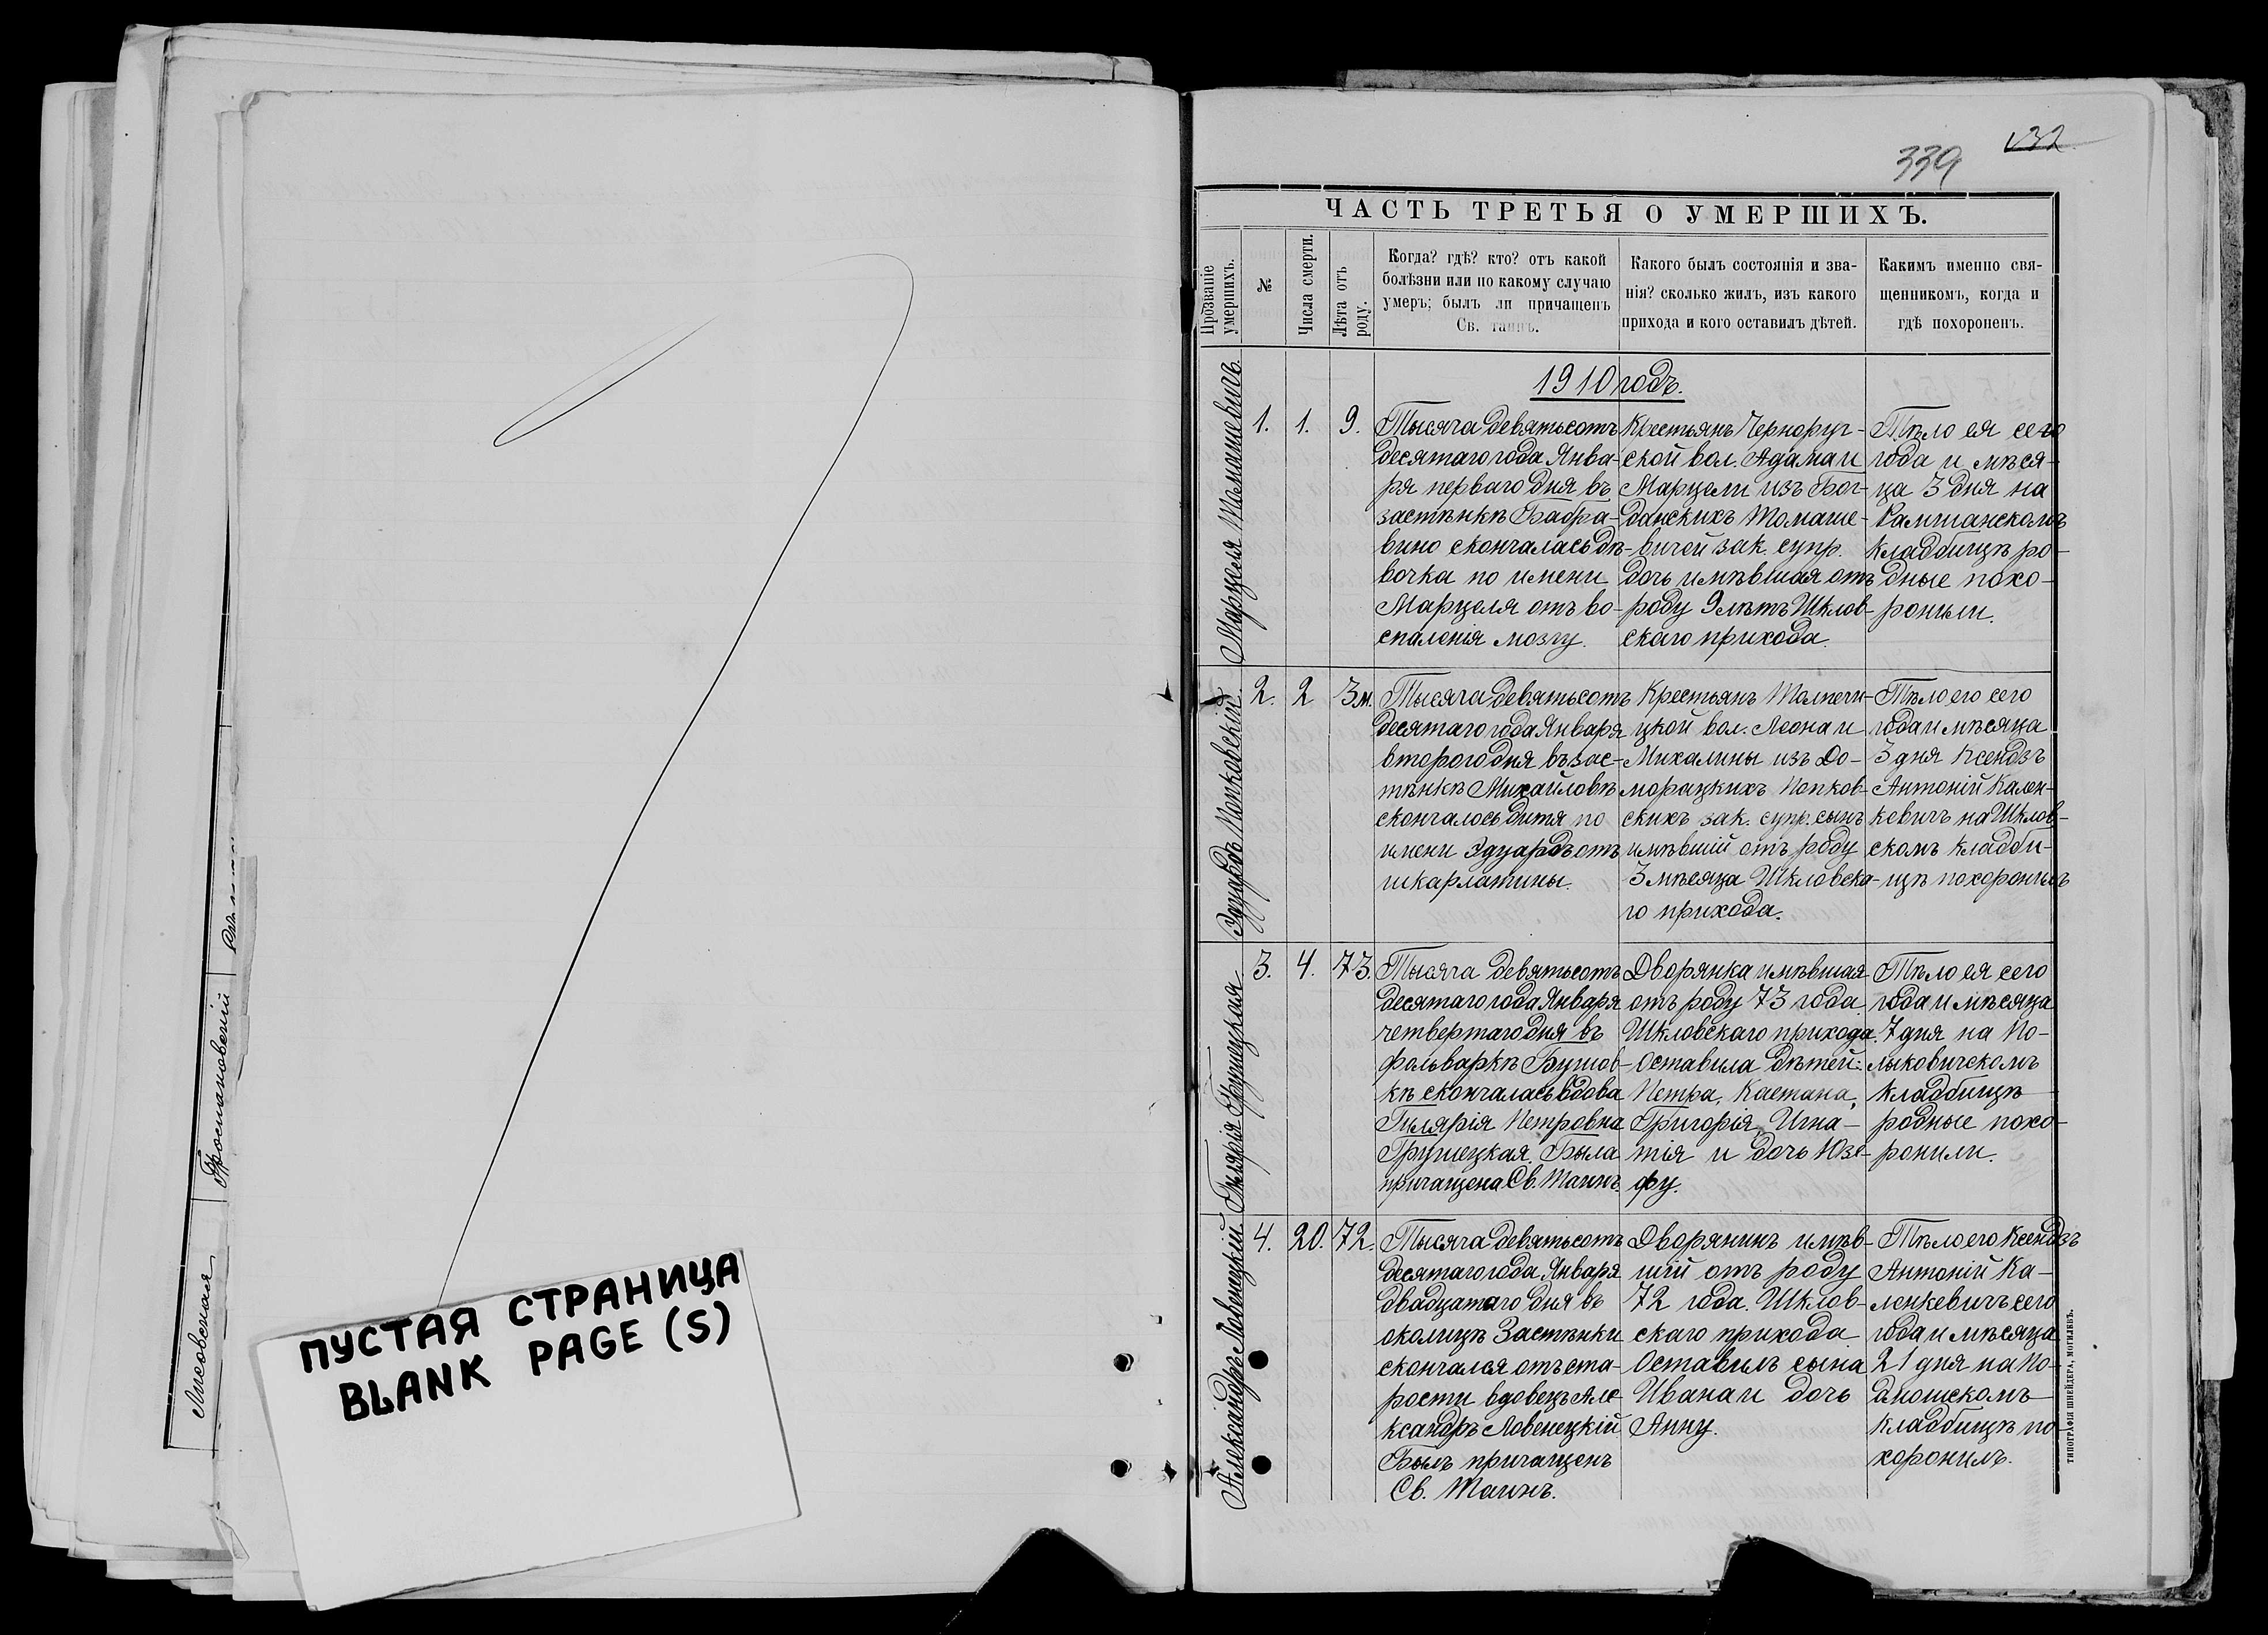 Лисовская
Простановскій
ПУСТАЯ СТРАНИЦА
BLANK PAGE (S)
339
132
ЧАСТЬ ТРЕТЬЯ О УМЕРШИХЪ.
Прозваніе умершихъ.
№
Числа смерти.
Лѣта отъ роду.
Когда? гдѣ? кто? отъ какой
болѣзни или по какому случаю
умеръ; былъ ли причащенъ
Св. таинъ.
Какого былъ состоянія и зва-
нія? сколько жилъ, изъ какого
прихода и кого оставилъ дѣтей.
Какимъ именно свя-
щенникомъ, когда и
гдѣ похороненъ.
1910 годъ.
Марцеля Томашевичъ.
1.
1.
9.
Тысяча девятьсотъ
десятаго года Янва-
ря перваго дня въ
застѣнкѣ Бабра-
вино скончалась дѣ-
вочка по имени
Марцеля отъ во-
спаленія мозгу.
Крестьянъ Черноруч-
ской вол. Адама и
Марцели изъ Бог-
данскихъ Томаше-
вичей зак. супр.
дочь имѣвшая отъ
роду 9 лѣтъ Шклов-
скаго прихода.
Тѣло ея сего
года и мѣся-
ца 3 дня на
Рамшанскомъ
кладбищѣ ро-
дные похо-
ронили.
Эдуардъ Попковскій.
2.
2
3 м.
Тысяча девятьсотъ
десятаго года Января
второго дня въ зас-
тѣнкѣ Михайловѣ
скончалось дитя по
имени Эдуардъ отъ
шкарлатины.
Крестьянъ Толпечи-
цкой вол. Леона и
Михалины изъ До-
морацкихъ Попков-
скихъ зак. супр. сынъ
имѣвшій отъ роду
3 мѣсяца Шкловска-
го прихода.
Тѣло его сего
года и мѣсяца
3 дня Ксендзъ
Антоній Кален-
кевичъ на Шклов-
скомъ кладби-
щѣ похоронилъ
Гилярія Грушецкая
3.
4.
73.
Тысяча девятьсотъ
десятаго года Января
четвертаго дня въ
фольваркѣ Бушов-
кѣ скончалась вдова
Гилярія Петровна
Грушецкая. Была
причащена Св. Таинъ.
Дворянка имѣвшая
отъ роду 73 года
Шкловскаго прихода.
Оставила дѣтей:
Петра, Каетана,
Григорія, Игна-
тія и дочь Юзе-
фу.
Тѣло ея сего
года и мѣсяца
7 дня на По-
лыковичскомъ
кладбищѣ
родные похо-
ронили.
Александръ Ловенецкій
4.
20.
72.
Тысяча девятьсотъ
десятаго года Января
двадцатаго дня въ
околицѣ Застѣнки
скончался отъ ста-
рости вдовецъ Але-
ксандръ Ловенецкій
Былъ причащенъ
Св. Таинъ.
Дворянинъ имѣв-
шій отъ роду
72 года. Шклов-
скаго прихода
Оставилъ сына
Ивана и дочь
Анну.
Тѣло его Ксендзъ
Антоній Ка-
ленкевичъ сего
года и мѣсяца
21 дня на По-
кладбищѣ по
хоронилъ.
ТИПОГРАФІЯ ШНЕЙДЕРА, МОГИЛЕВЪ.